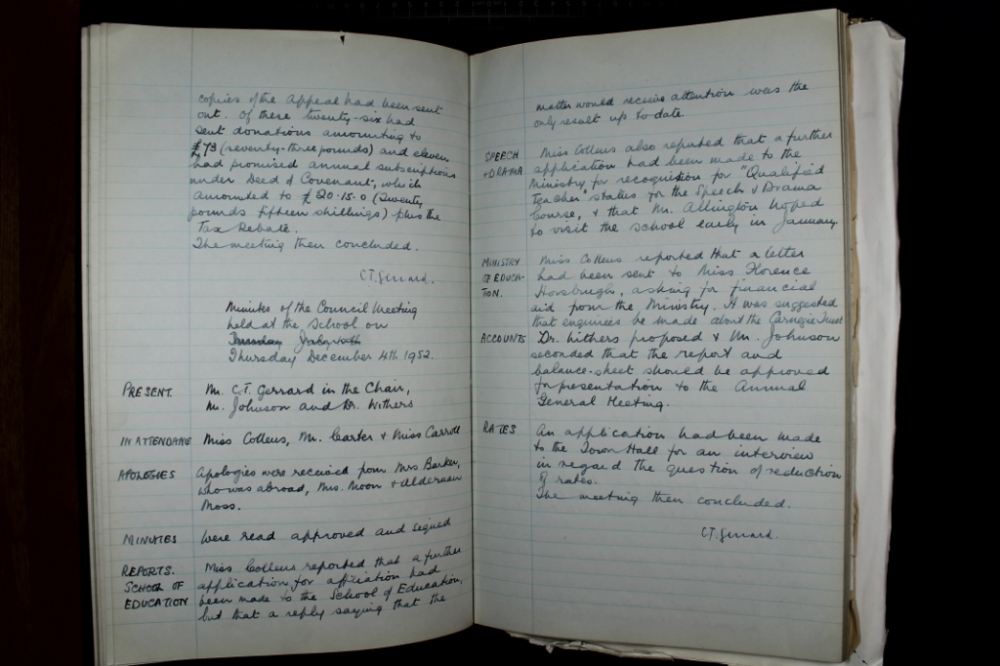 copies of the Appeal had been sent
out. Of these twenty-six had
sent donations amounting to
£73 (seventy-three pounds) and eleven
had promised annual subscriptions
under Deed of Covenant, which
amounted to £20-15-0 (twenty
pounds fifteen shillings) plus the
Tax Rebate.
The meeting then concluded.
C.T. Gerrard.
Minutes of the Council Meeting
held at the School on
Thursday December 4th 1952.
PRESENT. Mr. C.T. Gerrard in the Chair,
Mr. Johnson and Dr. Withers
IN ATTENDANCE Miss Collens, Mr. Carter & Miss Carroll
APOLOGIES Apologies were received from Mrs Barker,
who was abroad, Mrs. Moon & Alderman
Moss.
MINUTES Were read approved and signed
REPORTS. Miss Collens reported that a further
SCHOOL OF application for affiliation had
EDUCATION been made to the School of Education,
but that a reply saying that the
matter would receive attention was the
only result up to date.
SPEECH Miss Collens also reported that a further
& DRAMA application had been made to the
Ministry for recognition for "Qualified
Teacher" status for the Speech & Drama
Course, & that Mr. Allington hoped
to visit the school early in January.
MINISTRY Miss Collens reported that a letter
OF EDUCA- had been sent to Miss Florence
TION. Horsbrugh, asking for financial
aid from the Ministry. It was suggested
that enquiries be made about the Carnegie Trust
ACCOUNTS Dr. Withers proposed & Mr. Johnson
seconded that the report and
balance-sheet should be approved
for presentation to the Annual
General Meeting.
RATES An application had been made
to the Town Hall for an interview
in regard the question of reduction
of rates.
The meeting then concluded.
C.T. Gerrard.